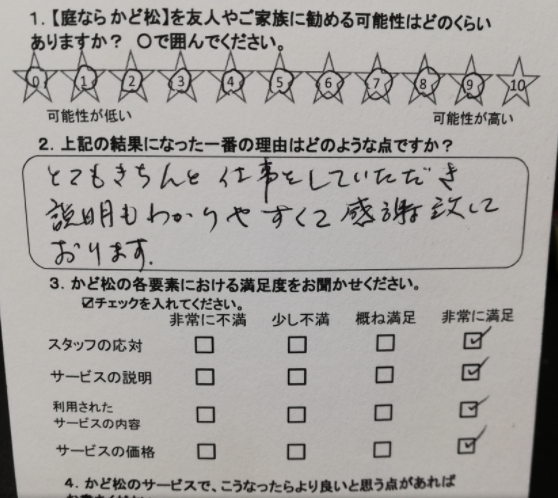 1.【庭なら かど松】を友人やご家族に勧める可能性はどのくらい
ありますか？ ○で囲んでください。
0 1 2 3 4 5 6 7 8 9 10
可能性が低い 可能性が高い
2. 上記の結果になった一番の理由はどのような点ですか？
とてもきちんと仕事をしていただき
説明もわかりやすくて感謝致して
おります.
3. かど松の各要素における満足度をお聞かせください。
☑チェックを入れてください。
非常に不満 少し不満 概ね満足 非常に満足
スタッフの応対 ☐ ☐ ☐ ☑
サービスの説明 ☐ ☐ ☐ ☑
利用された
サービスの内容 ☐ ☐ ☐ ☑
サービスの価格 ☐ ☐ ☐ ☑
4. かど松のサービスで、こうなったらより良いと思う点があれば